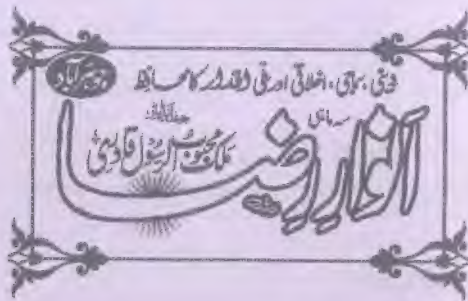 جوہرآباد
دینی، سماجی، اخلاقی اور ملی اقدار کا محافظ
سہ ماہی
انوارِ رضا
ملک محبوب الرسول قادری